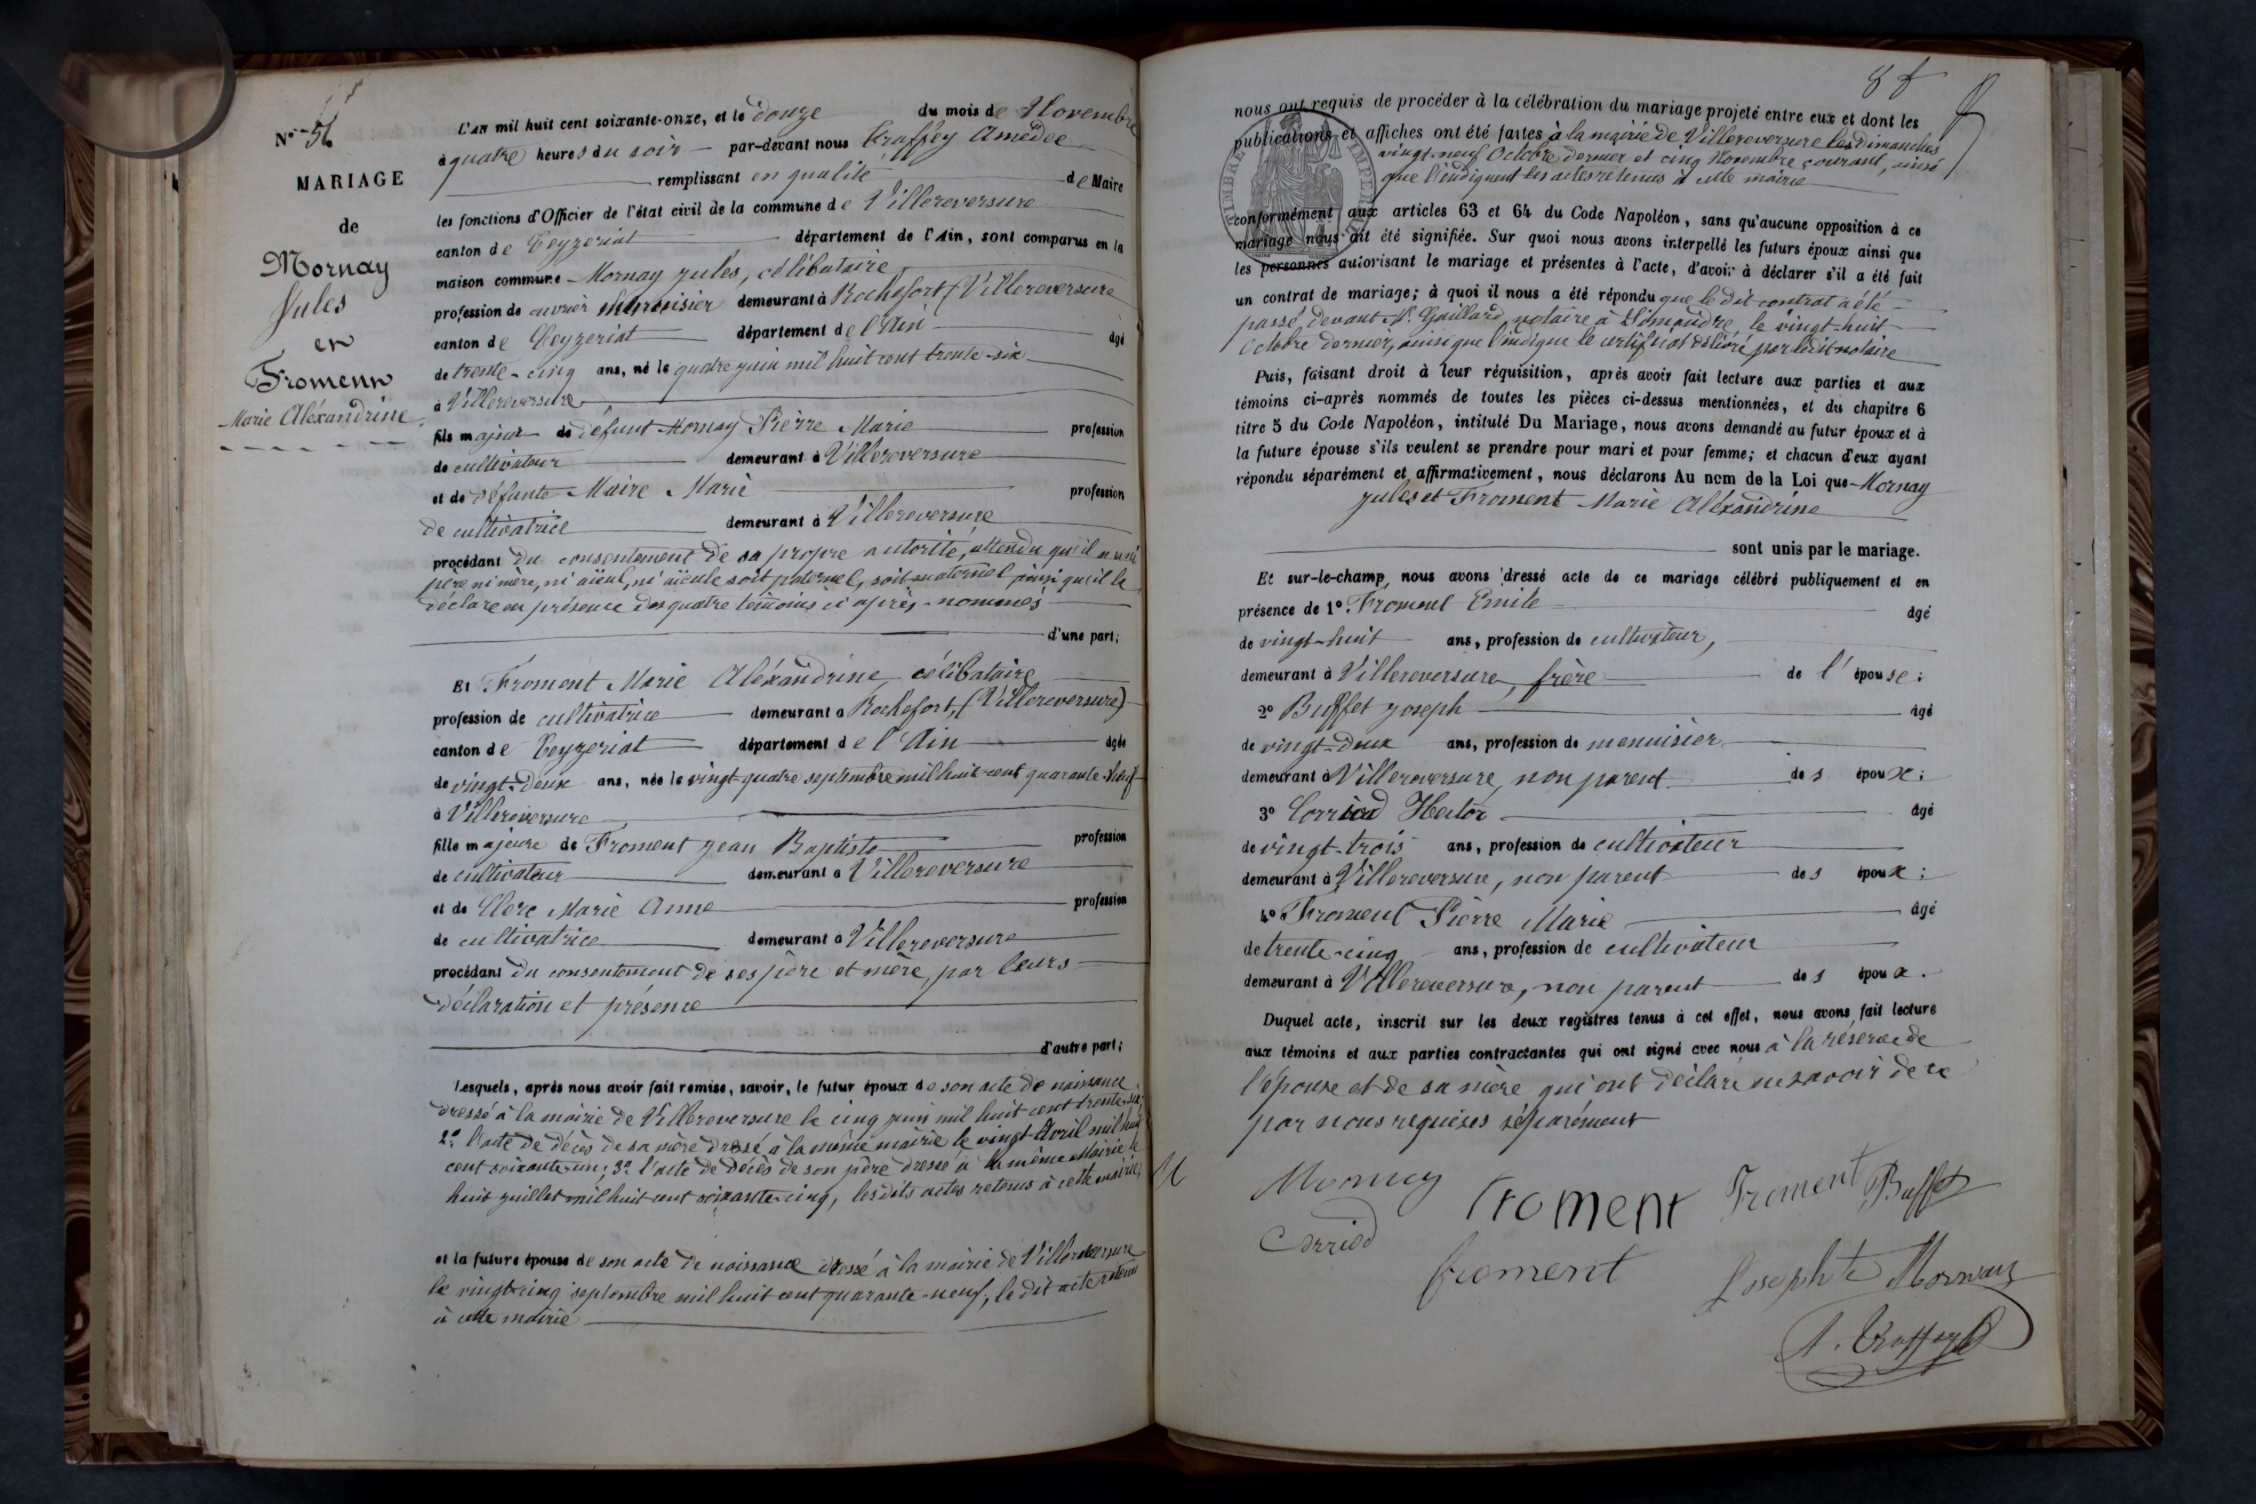 N° 56
MARIAGE
de
Mornay
Jules
et
Froment
Marie Aléxandrine
L'an mil huit cent soixante-onze, et le douze du mois de Novembre
à quatre heures du soir par-devant nous Amédée
remplissant en qualité de Maire
les fonctions d'Officier de l'état civil de la commune de Villereversure
canton de Ceyzeriat département de l'Ain, sont comparus en la
maison commune Mornay Jules, célibataire
profession de ouvrier menuisier demeurant à Rochefort (Villereversure
canton de Ceyzeriat département de l'Ain âgé
de trente-cinq ans, né le quatre juin mil huit cent trente-six
à Villereversure
fils majeur de défunt Mornay Pierre Marie profession
de cultivateur demeurant à Villereversure
et de défunte Maire Marie profession
de cultivatrice demeurant à Villereversure
procédant du consentement de sa propre autorité, attendu qu'il n'a ni
père ni mère, ni aïeul, ni aïeule soit paternel, soit maternel ainsi qu'il le
déclare en présence des quatre témoins ci après nommés
d'une part;
Et Froment Marie Aléxandrine, célibataire
profession de cultivatrice demeurant à Rochefort, (Villereversure)
canton de Ceyzeriat département de l'Ain âgée
de vingt-deux ans, née le vingt-quatre septembre mil huit cent quarante-neuf
à Villereversure
fille majeure de Froment Jean Baptiste profession
de cultivateur demeurant à Villereversure
et de Clerc Marie Anne profession
de cultivatrice demeurant à Villereversure
procédant du consentement de ses père et mère, par leurs
déclaration et présence
d'autre part;
Lesquels, après nous avoir fait remise, savoir, le futur époux de son acte de naissance
dressé à la mairie de Villereversure le cinq juin mil huit cent trente-six;
2° l'acte de décès de sa mère dressé à la même mairie le vingt Avril mil huit
cent soixante-un; 3° l'acte de décès de son père dressé à la même Mairie le
huit juillet mil huit cent soixante-cinq, lesdits actes retenus à cette mairie;
et la future épouse de son acte de naissance dressé à la mairie de Villereversure
le vingt-cinq septembre mil huit cent quarante-neuf, le dit acte retenu
à cette mairie
nous ont requis de procéder à la célébration du mariage projeté entre eux et dont les
publications et affiches ont été faites à la mairie de Villereversure les dimanches
vingt-neuf Octobre dernier et cinq Novembre courant, ainsi
que l'indiquent les actes retenus à cette mairie
conformément aux articles 63 et 64 du Code Napoléon, sans qu'aucune opposition à ce
mariage nous ait été signifiée. Sur quoi nous avons interpellé les futurs époux ainsi que
les personnes autorisant le mariage et présentes à l'acte, d'avoir à déclarer s'il a été fait
un contrat de mariage; à quoi il nous a été répondu que le dit contrat a été
passé devant Mr Gaillard, notaire à Simandre, le vingt-huit
Octobre dernier, ainsi que l'indique le certificat délivré par ledit notaire
Puis, faisant droit à leur réquisition, après avoir fait lecture aux parties et aux
témoins ci-après nommés de toutes les pièces ci-dessus mentionnées, et du chapitre 6
titre 5 du Code Napoléon, intitulé Du Mariage, nous avons demandé au futur époux et à
la future épouse s'ils veulent se prendre pour mari et pour femme; et chacun d'eux ayant
répondu séparément et affirmativement, nous déclarons Au nom de la Loi que Mornay
Jules et Froment Marie Aléxandrine
sont unis par le mariage.
Et sur-le-champ, nous avons dressé acte de ce mariage célébré publiquement et en
présence de 1° Froment Emile âgé
de vingt-huit ans, profession de cultivateur,
demeurant à Villereversure, frère de l'épouse;
2° Buffet Joseph âgé
de vingt-deux ans, profession de menuisier
demeurant à Villereversure, non parent des époux;
3° Corriod Hector âgé
de vingt-trois ans, profession de cultivateur
demeurant à Villereversure, non parent des époux;
4° Froment Pierre Marie âgé
de trente-cinq ans, profession de cultivateur
demeurant à Villereversure, non parent des époux.
Duquel acte, inscrit sur les deux registres tenus à cet effet, nous avons fait lecture
aux témoins et aux parties contractantes qui ont signé avec nous à la réserve de
l'épouse et de sa mère qui ont déclaré ne savoir de ce
par nous requises séparément
Mornay froment Froment Buffet
Corriod froment Josephte Mornay